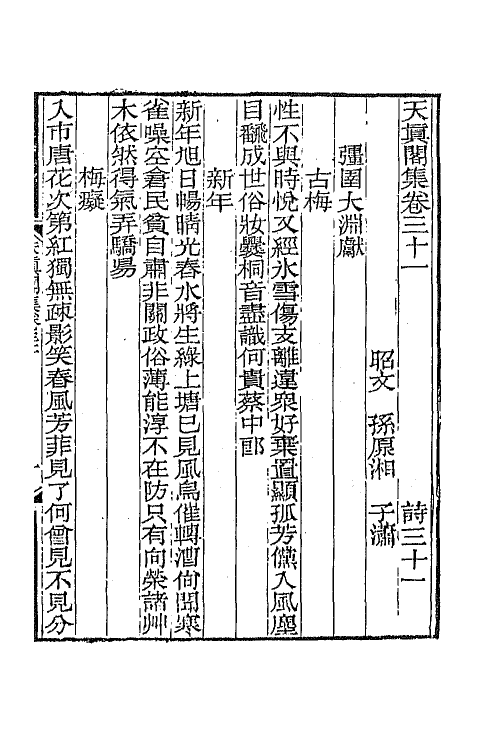 天真閣集卷三十一　詩三十一
昭文　孫原湘　子瀟
彊圉大淵獻
古梅
性不與時悅又經冰雪傷支離違眾好棄置顯孤芳儻入風塵
目飜成世俗妝爨桐音盡識何貴蔡中郎
新年
新年旭日暢晴光春水將生綠上塘已見風烏催轉漕尙聞寒
雀噪空倉民貧自肅非關政俗薄能淳不在防只有向榮諸艸
木依然得氣弄驕昜
梅癡
入市唐花次第紅獨無疎影笑春風芳菲見了何曾見不見分